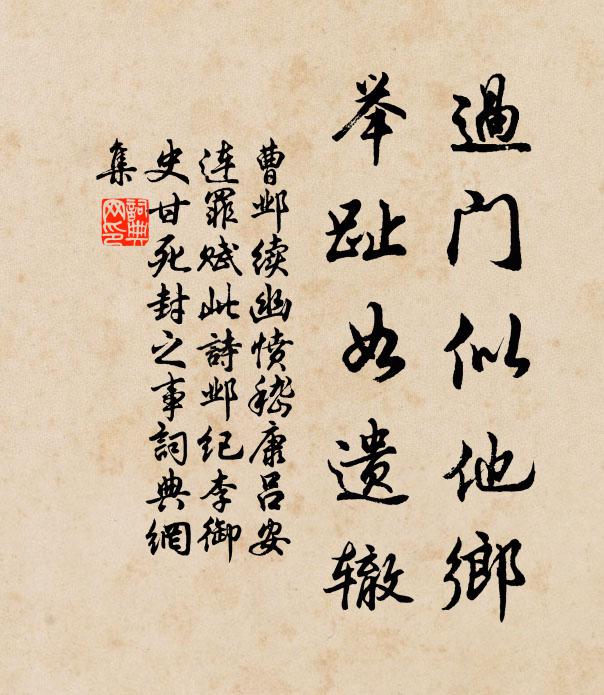 過门似他鄉
举趾如遗辙
曹邺续幽愤嵇康吕安
连罪赋此詩邺纪李御
史甘死封之事詞典網
集
詞典
网印